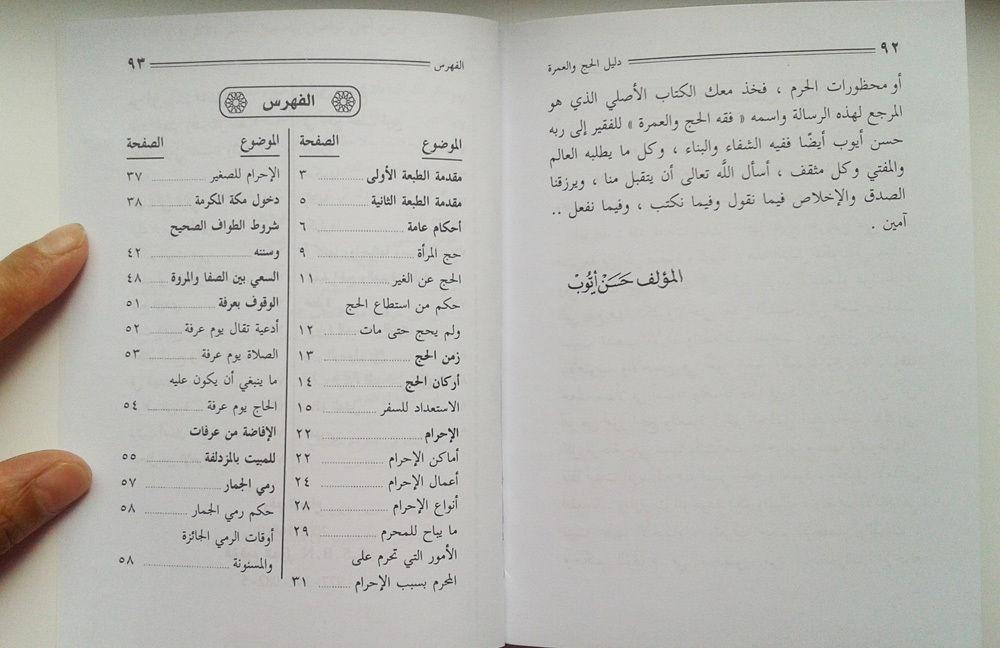 ٩٢
دليل الحج والعمرة
أو محظورات الحرم ، فخذ معك الكتاب الأصلي الذي هو
المرجع لهذه الرسالة واسمه « فقه الحج والعمرة » للفقير إلى ربه
حسن أيوب أيضًا ففيه الشفاء والبناء ، وكل ما يطلبه العالم
والمفتي وكل مثقف ، أسأل اللَّه تعالى أن يتقبل منا ، ويرزقنا
الصدق والإخلاص فيما نقول وفيما نكتب ، وفيما نفعل ..
آمين .
المؤلف حَسَنْ أيُّوبْ
الفهرس
٩٣
الفهرس
الموضوع الصفحة
مقدمة الطبعة الأولى ........ ٣
مقدمة الطبعة الثانية ........ ٥
أحكام عامة ........ ٦
حج المرأة ........ ٩
الحج عن الغير ........ ١١
حكم من استطاع الحج
ولم يحج حتى مات ........ ١٢
زمن الحج ........ ١٣
أركان الحج ........ ١٤
الاستعداد للسفر ........ ١٥
الإحرام ........ ٢٢
أماكن الإحرام ........ ٢٢
أعمال الإحرام ........ ٢٤
أنواع الإحرام ........ ٢٨
ما يباح للمحرم ........ ٢٩
الأمور التي تحرم على
المحرم بسبب الإحرام ........ ٣١
الموضوع الصفحة
الإحرام للصغير ........ ٣٧
دخول مكة المكرمة ........ ٣٨
شروط الطواف الصحيح
وسننه ........ ٤٢
السعي بين الصفا والمروة ........ ٤٨
الوقوف بعرفة ........ ٥١
أدعية تقال يوم عرفة ........ ٥٢
الصلاة يوم عرفة ........ ٥٣
ما ينبغي أن يكون عليه
الحاج يوم عرفة ........ ٥٤
الإفاضة من عرفات
للمبيت بالمزدلفة ........ ٥٥
رمي الجمار ........ ٥٧
حكم رمي الجمار ........ ٥٨
أوقات الرمي الجائزة
والمسنونة ........ ٥٨